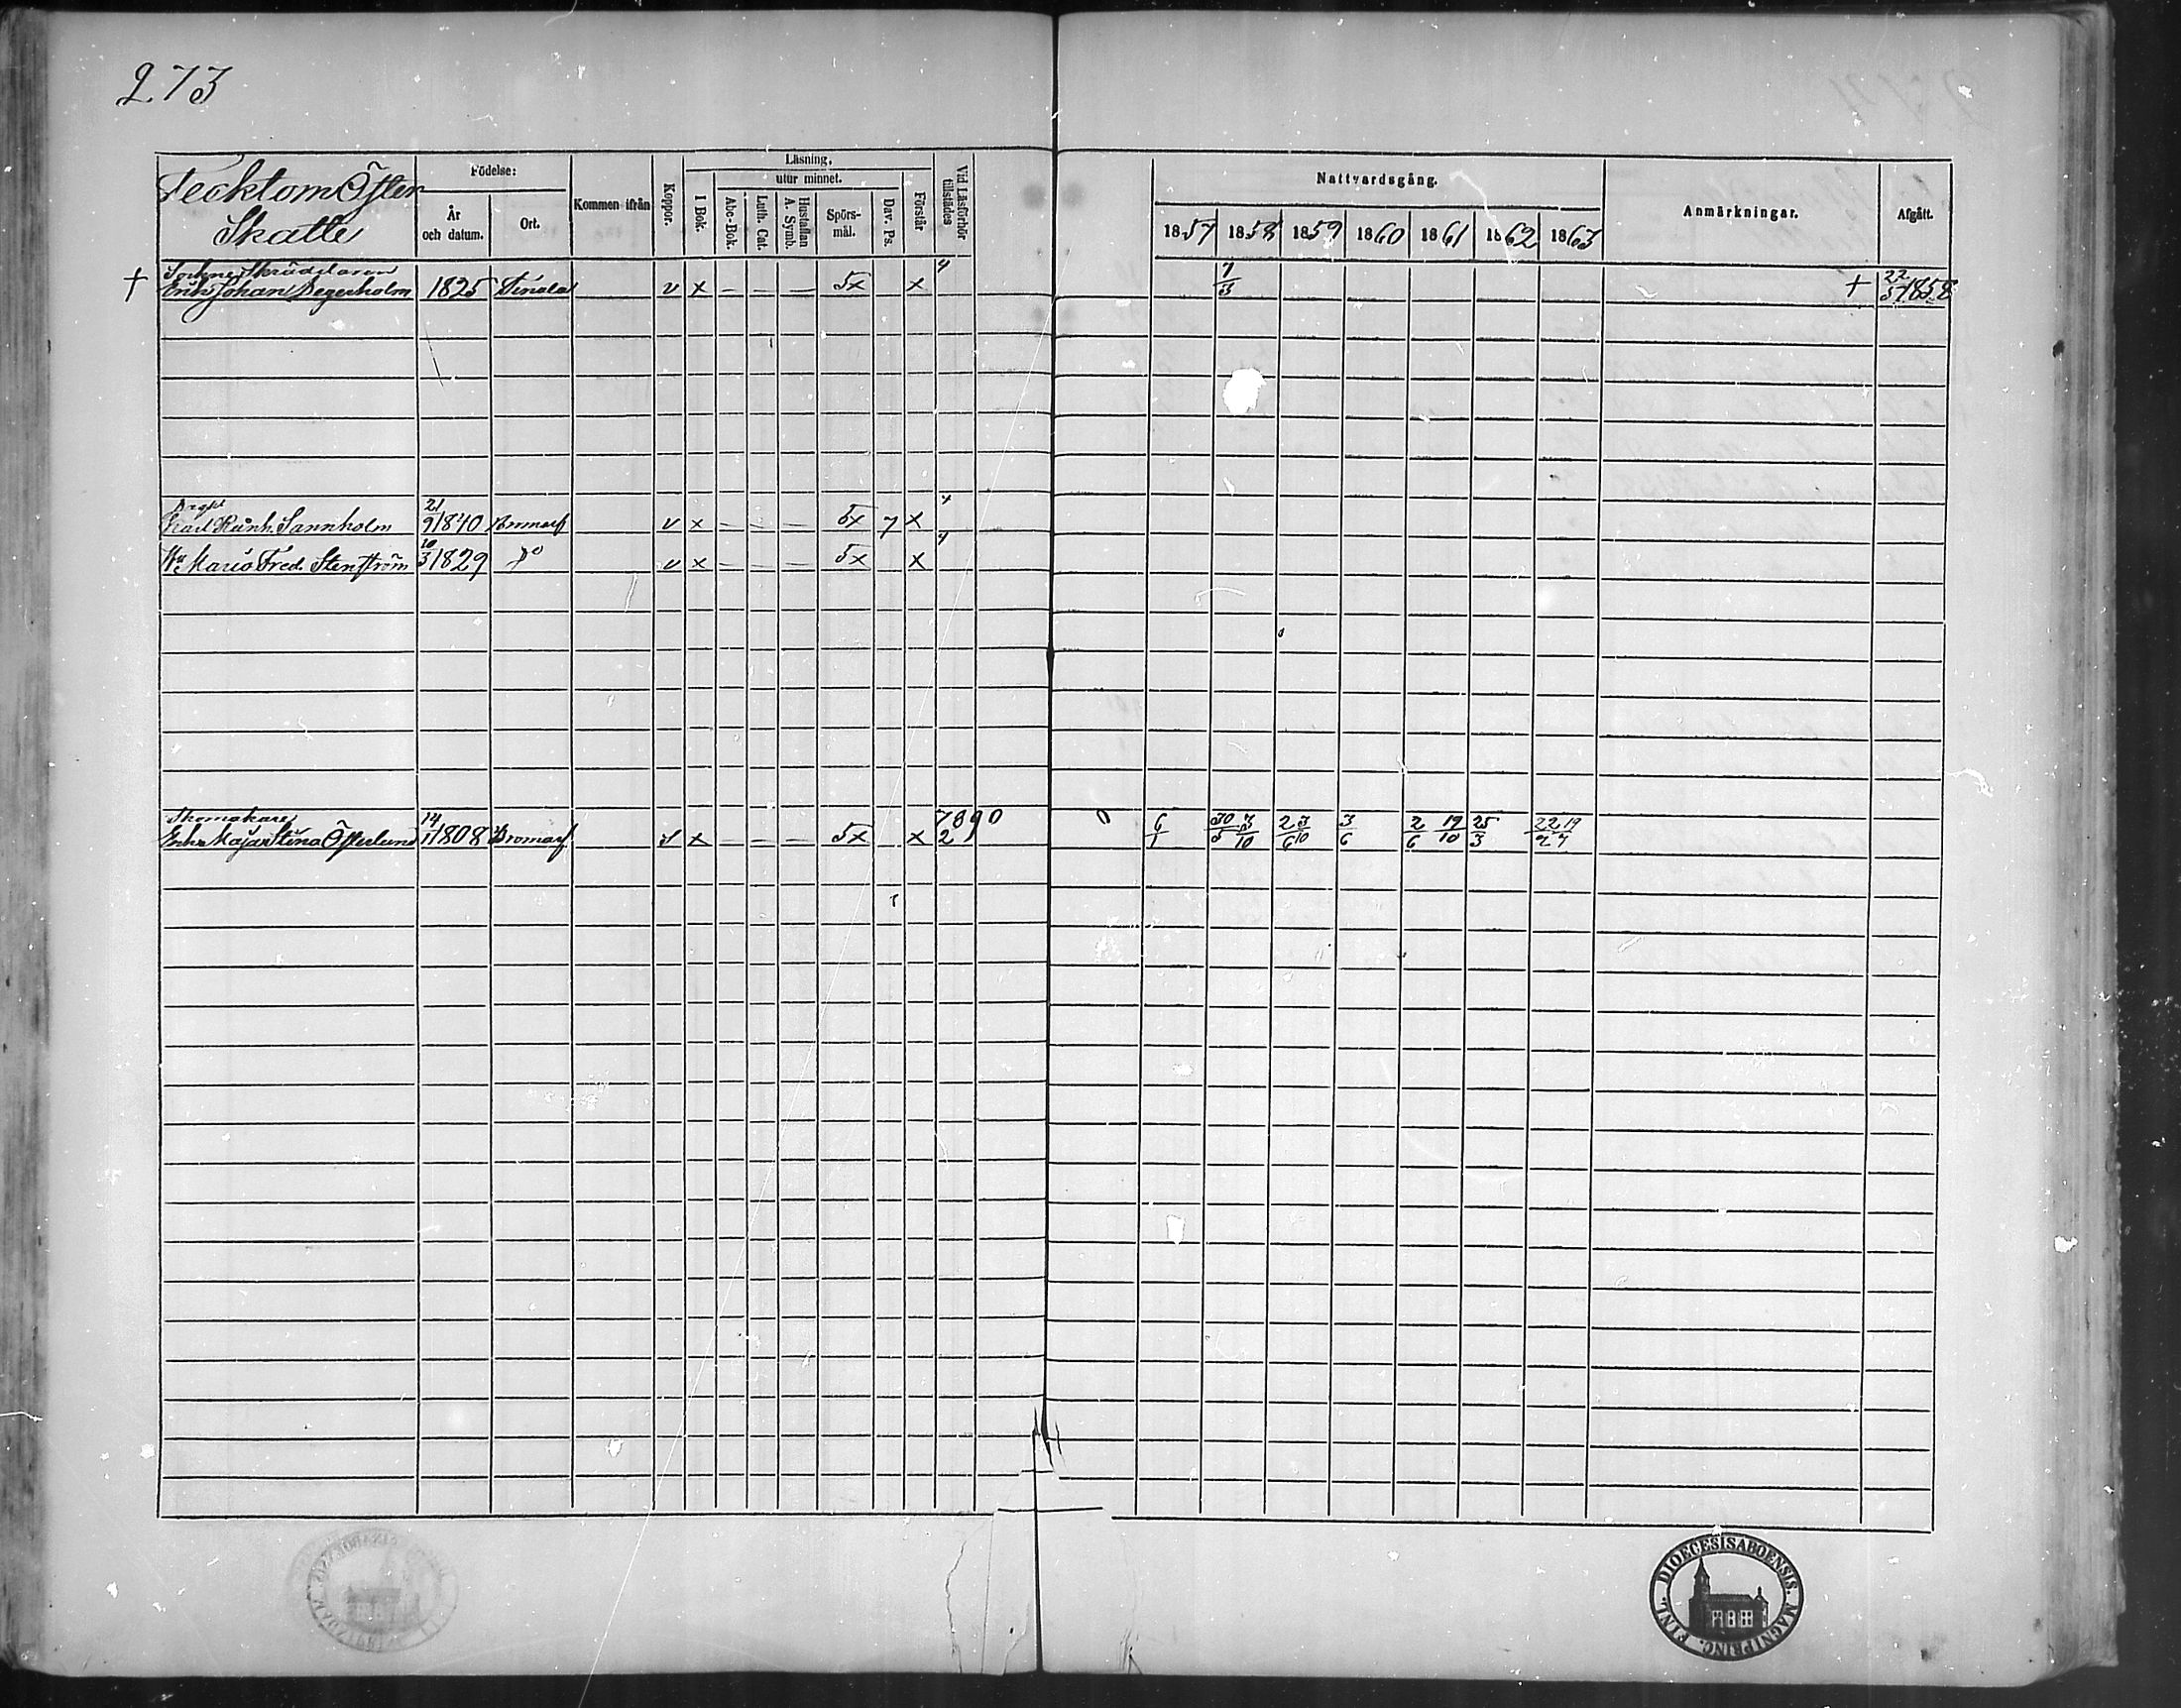 273
Tecktom Öster
Skatte
Födelse:
År
och datum.
Ort.
Kommen ifrån
Koppor.
Läsning.
I Bok.
utur minnet.
Abc-Bok.
Luth. Cat.
Hustaflan
A. Symb.
Spörs-
mål.
Dav. Ps.
Förstår
Vid Läsförhör
tillstädes
Nattvardsgång.
1857 1858 1859 1860 1861 1862 1863
Anmärkningar.
Afgått.
Sockne Skräddaren
† Enkl Johan Degerholm 1825 Tenala v x – – – 5x x 4 7/3 + 22/5 1858
Karl Reinh. Sannholm 21/9 1840 Bromarf v x – – – 5x 7 x 4
Maria Fred. Stenström 10/3 1829 Do v x – – – 5x x 4
Skomakare
Enka Maja Stina Österlund 14/1 1808 Bromarf x – – – 5x x 7 8 9 0 0 6/1 30/5 3/10 2/6 3/10 3/6 2/6 19/10 25/3 22/2 19/7
2
FINL. DIOECESIS ABOENSIS. MAGNI PRINC.